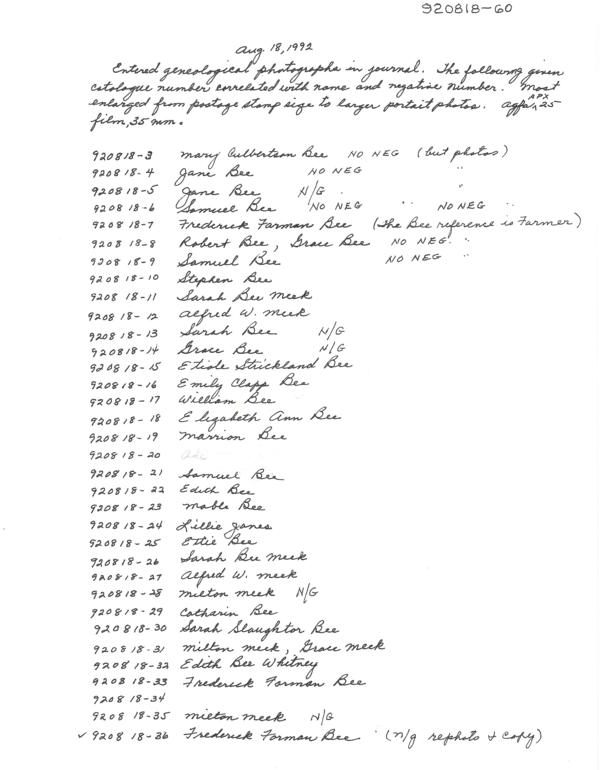 920818-60
Aug 18, 1992
Entered geneological photographs in journal. The following given
catologue number correlated with name and negative number. Most
enlarged from postage stamp size to larger portait photos. agfa APX 25
film, 35 mm.
920818-3 Mary Culbertson Bee NO NEG (but photos)
920818-4 Jane Bee NO NEG "
920818-5 Jane Bee N/G .
920818-6 Samuel Bee NO NEG " NO NEG "
920818-7 Frederick Forman Bee (The Bee reference is Farmer)
920818-8 Robert Bee, Grace Bee NO NEG. "
920818-9 Samuel Bee NO NEG "
920818-10 Stephen Bee
920818-11 Sarah Bee Meek
920818-12 Alfred W. Meek
920818-13 Sarah Bee N/G
920818-14 Grace Bee N/G
920818-15 Etiole Strickland Bee
920818-16 Emily Clapp Bee
920818-17 William Bee
920818-18 Elizabeth Ann Bee
920818-19 Marrion Bee
920818-20
920818-21 Samuel Bee
920818-22 Edith Bee
920818-23 Mable Bee
920818-24 Lillie Jones
920818-25 Ettie Bee
920818-26 Sarah Bee Meek
920818-27 Alfred W. Meek
920818-28 Milton Meek N/G
920818-29 Catharin Bee
920818-30 Sarah Slaughtor Bee
920818-31 Milton Meek, Grace Meek
920818-32 Edith Bee Whitney
920818-33 Frederick Forman Bee
920818-34
920818-35 Milton Meek N/G
✓ 920818-36 Frederick Forman Bee (N/g rephoto & copy)